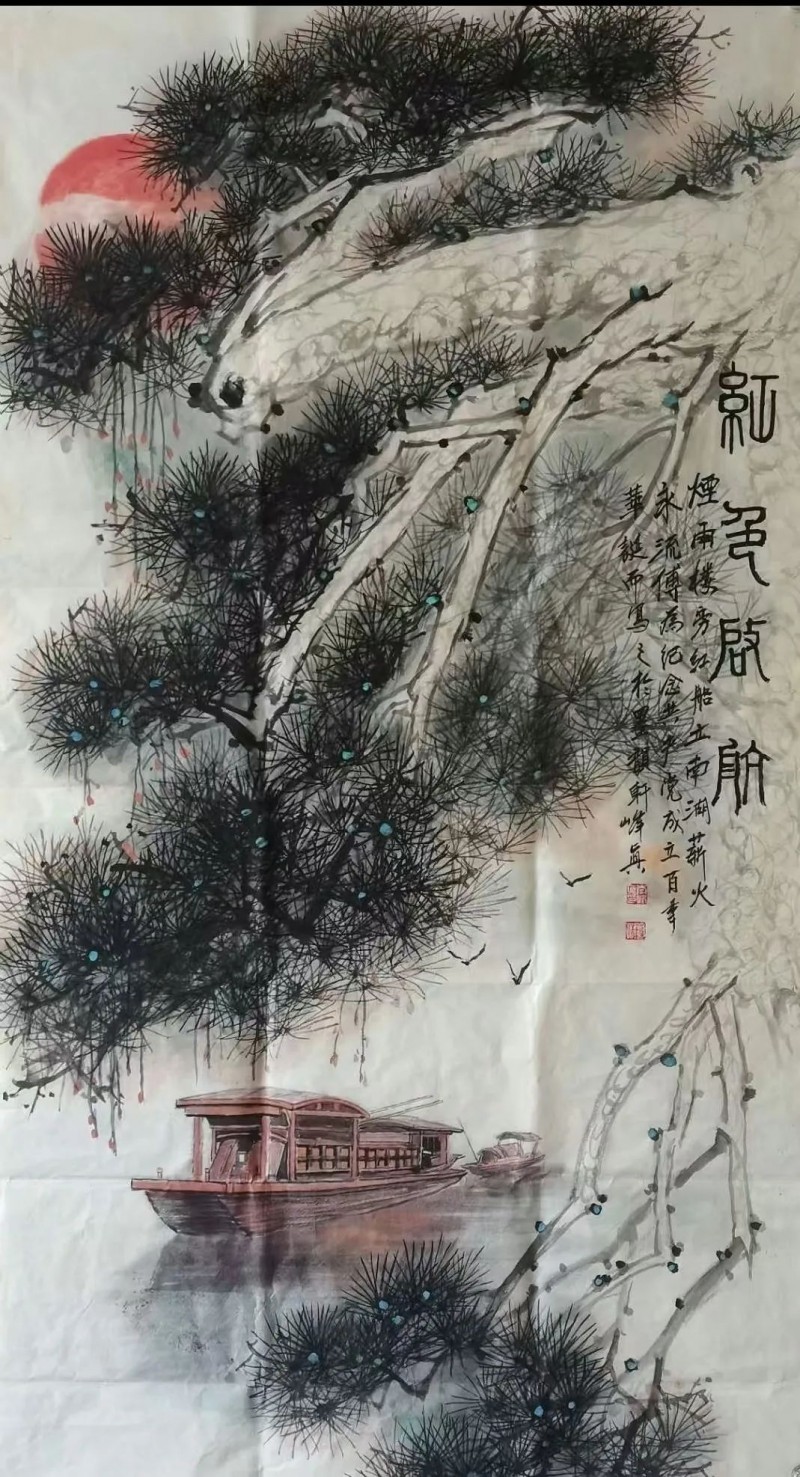 紅色啟航
煙雨樓旁紅船上南湖薪火
永流傳為紀念共产党成立百年
華誕而寫之於墨韻軒峰